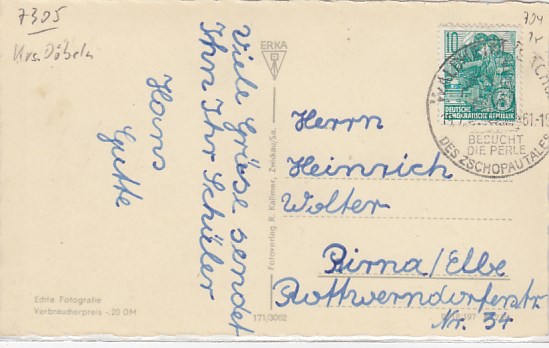 7305
Krs. Döbeln
704
Viele Grüsse sendet
Ihn Ihr Schüler
Hans
Gutte
ERKA
Fotoverlag R. Kallmer, Zwickau/Sa.
10
DEUTSCHE
DEMOKRATISCHE REPUBLIK
61-19
BESUCHT
DIE PERLE
DES ZSCHOPAUTALES
Herrn
Heinrich
Wolter
Pirna/Elbe
Rottwerndorferstr.
Nr. 34
Echte Fotografie
Verbraucherpreis -.20 DM
171/3062